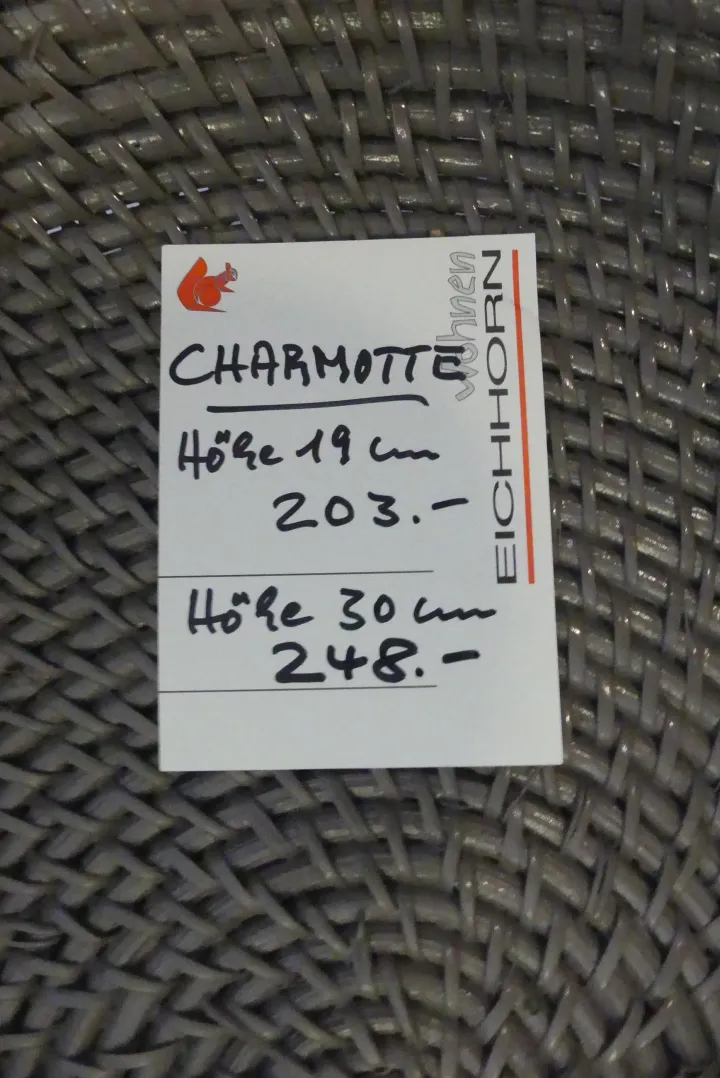 CHARMOTTE
Höhe 19 cm
203.-
Höhe 30 cm
248.-
wohnen
EICHHORN